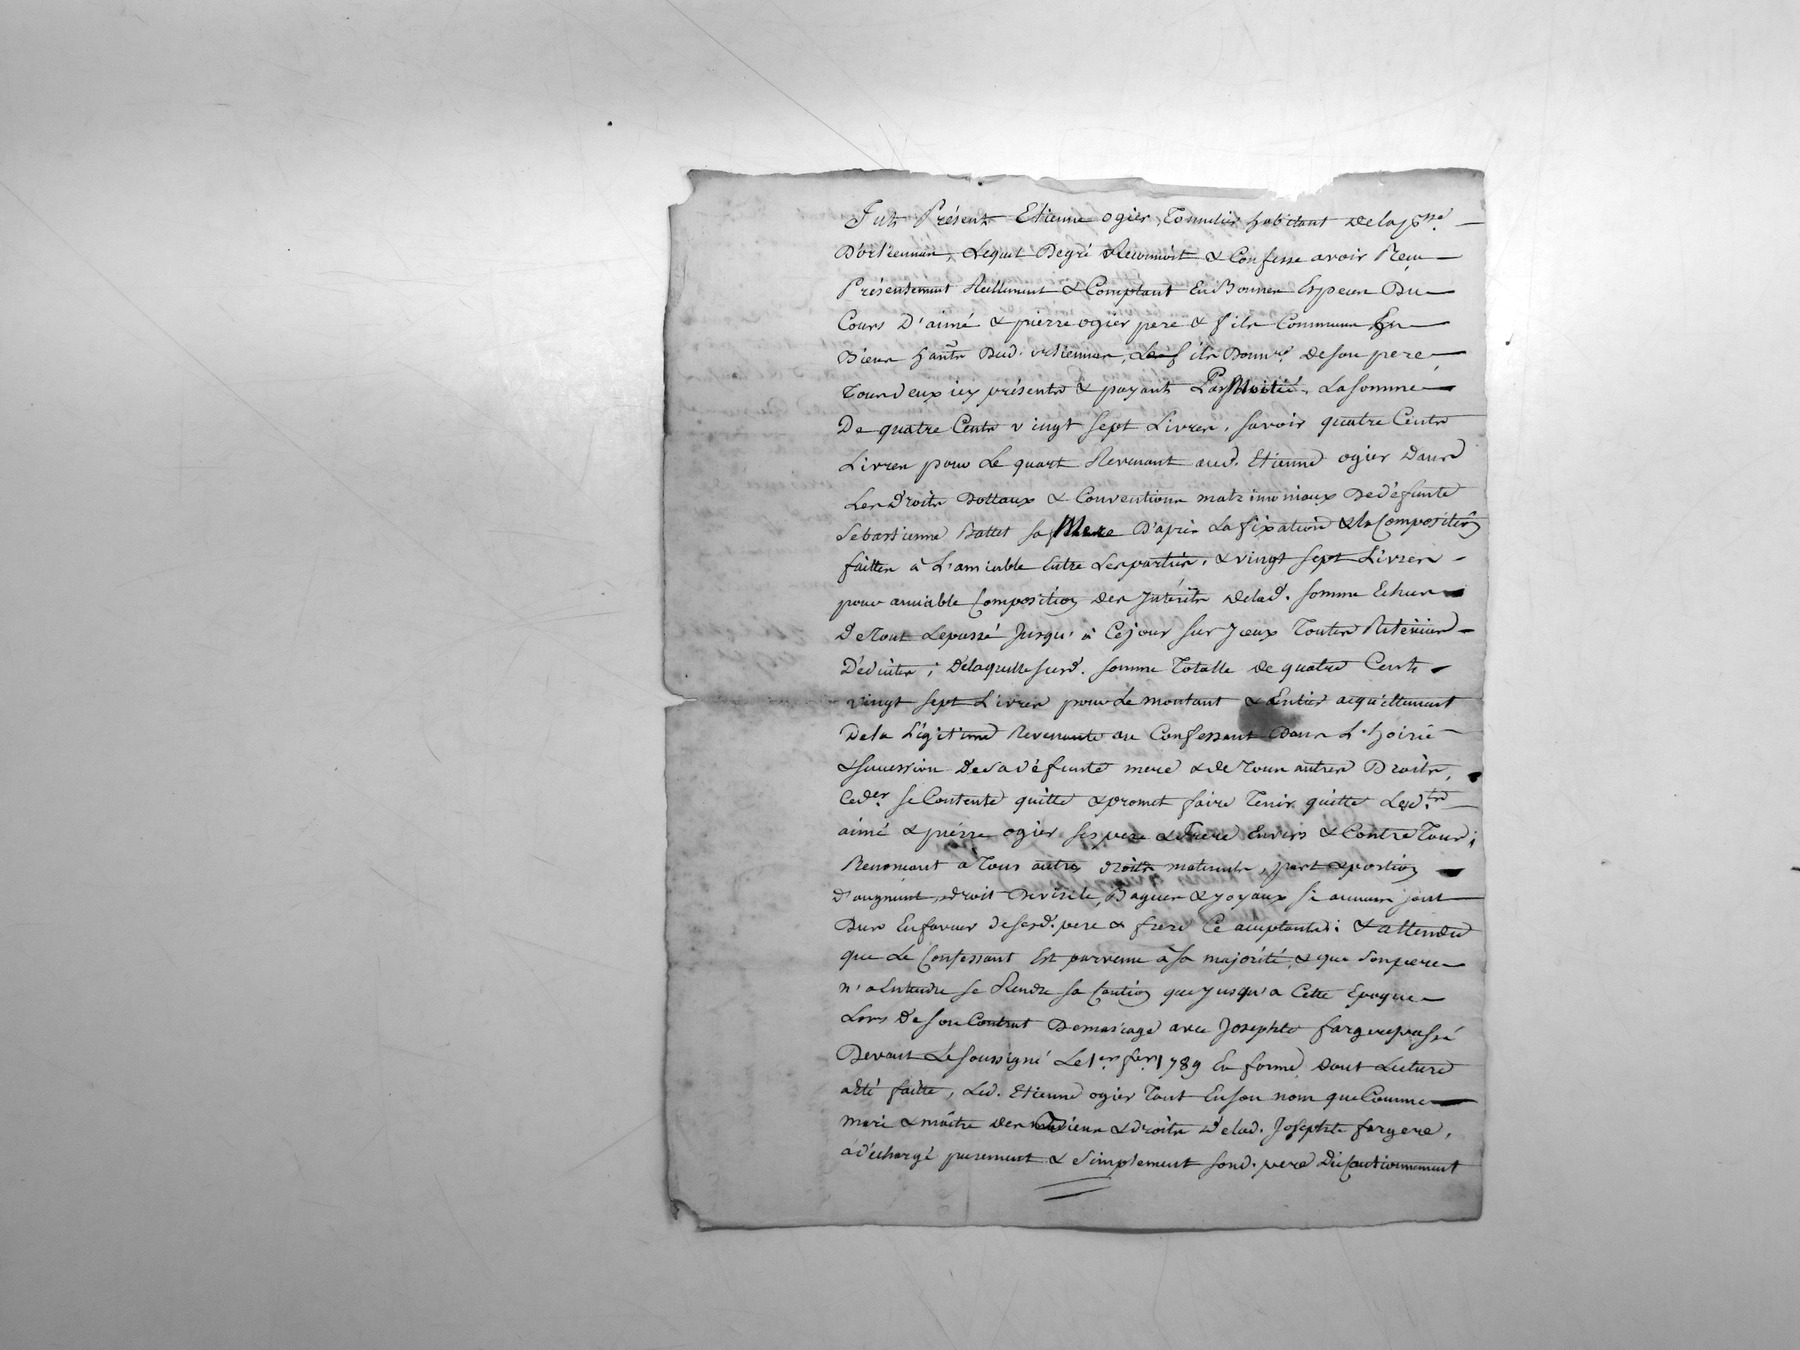 Fut Présent Etienne ogier, Tonnelier habitant de la psse.
D'ortiennan, Lequel Degré Reconnoit & Confesse avoir Reçu
Présentement Reellement & Comptant En Bonnes Especes Du
Cours D'aimé & pierre ogier pere & fils Communs En
Biens hants Dud. ortiennan, Le fils Donnre. de son pere
Tous deux icy présents & payant Par Moitié, La somme
De quatre Cents vingt sept Livres, savoir quatre Cents
Livres pour Le quart Revenant aud. Etienne ogier Dans
Les Droits Dottaux & Conventions matrimoniaux De défunte
Sebastienne Battet sa Mere D'après La fixation & la Composition
faittes à L'amiable Entre Les parties, & vingt sept Livres
pour amiable Composition des Intérêts de lad. somme Echus
de Tout Le passé Jusqu'à Ce jour sur Iceux Toutes
Déduites ; De laquelle susd. somme Totalle de quatre Cents
vingt sept Livres pour Le montant & Entier acquittement
De la Légitime Revenante au Confessant Dans L'hoirie
& succession De sa défunte mere & de Tous autres Droits,
Led. er se Contente quitte & promet faire Tenir quitte Lesd.
aimé & pierre ogier ses pere & frere Envers & Contre Tous ;
Renonçant à Tous autres droits maternels, part & portion
d'augment, droit De virile, Bagues & joyaux si aucuns sont
Dus En faveur de sesd. pere & frere Ce acceptants : & attendu
que Le Confessant Est parvenu à sa majorité, & que son pere
n'a Entendu se Rendre sa Caution que jusqu'a Cette Epoque
Lors de son Contrat De mariage avec Josephte fargere passé
Devant Le soussigné Le 1er. fer. 1789 En forme Dont Lecture
a Eté faitte, Led. Etienne ogier Tant En son nom que Comme
mari & maître des Biens & droits de lad. Josephte fargere,
a déchargé purement & simplement sond. pere Du Cautionnement